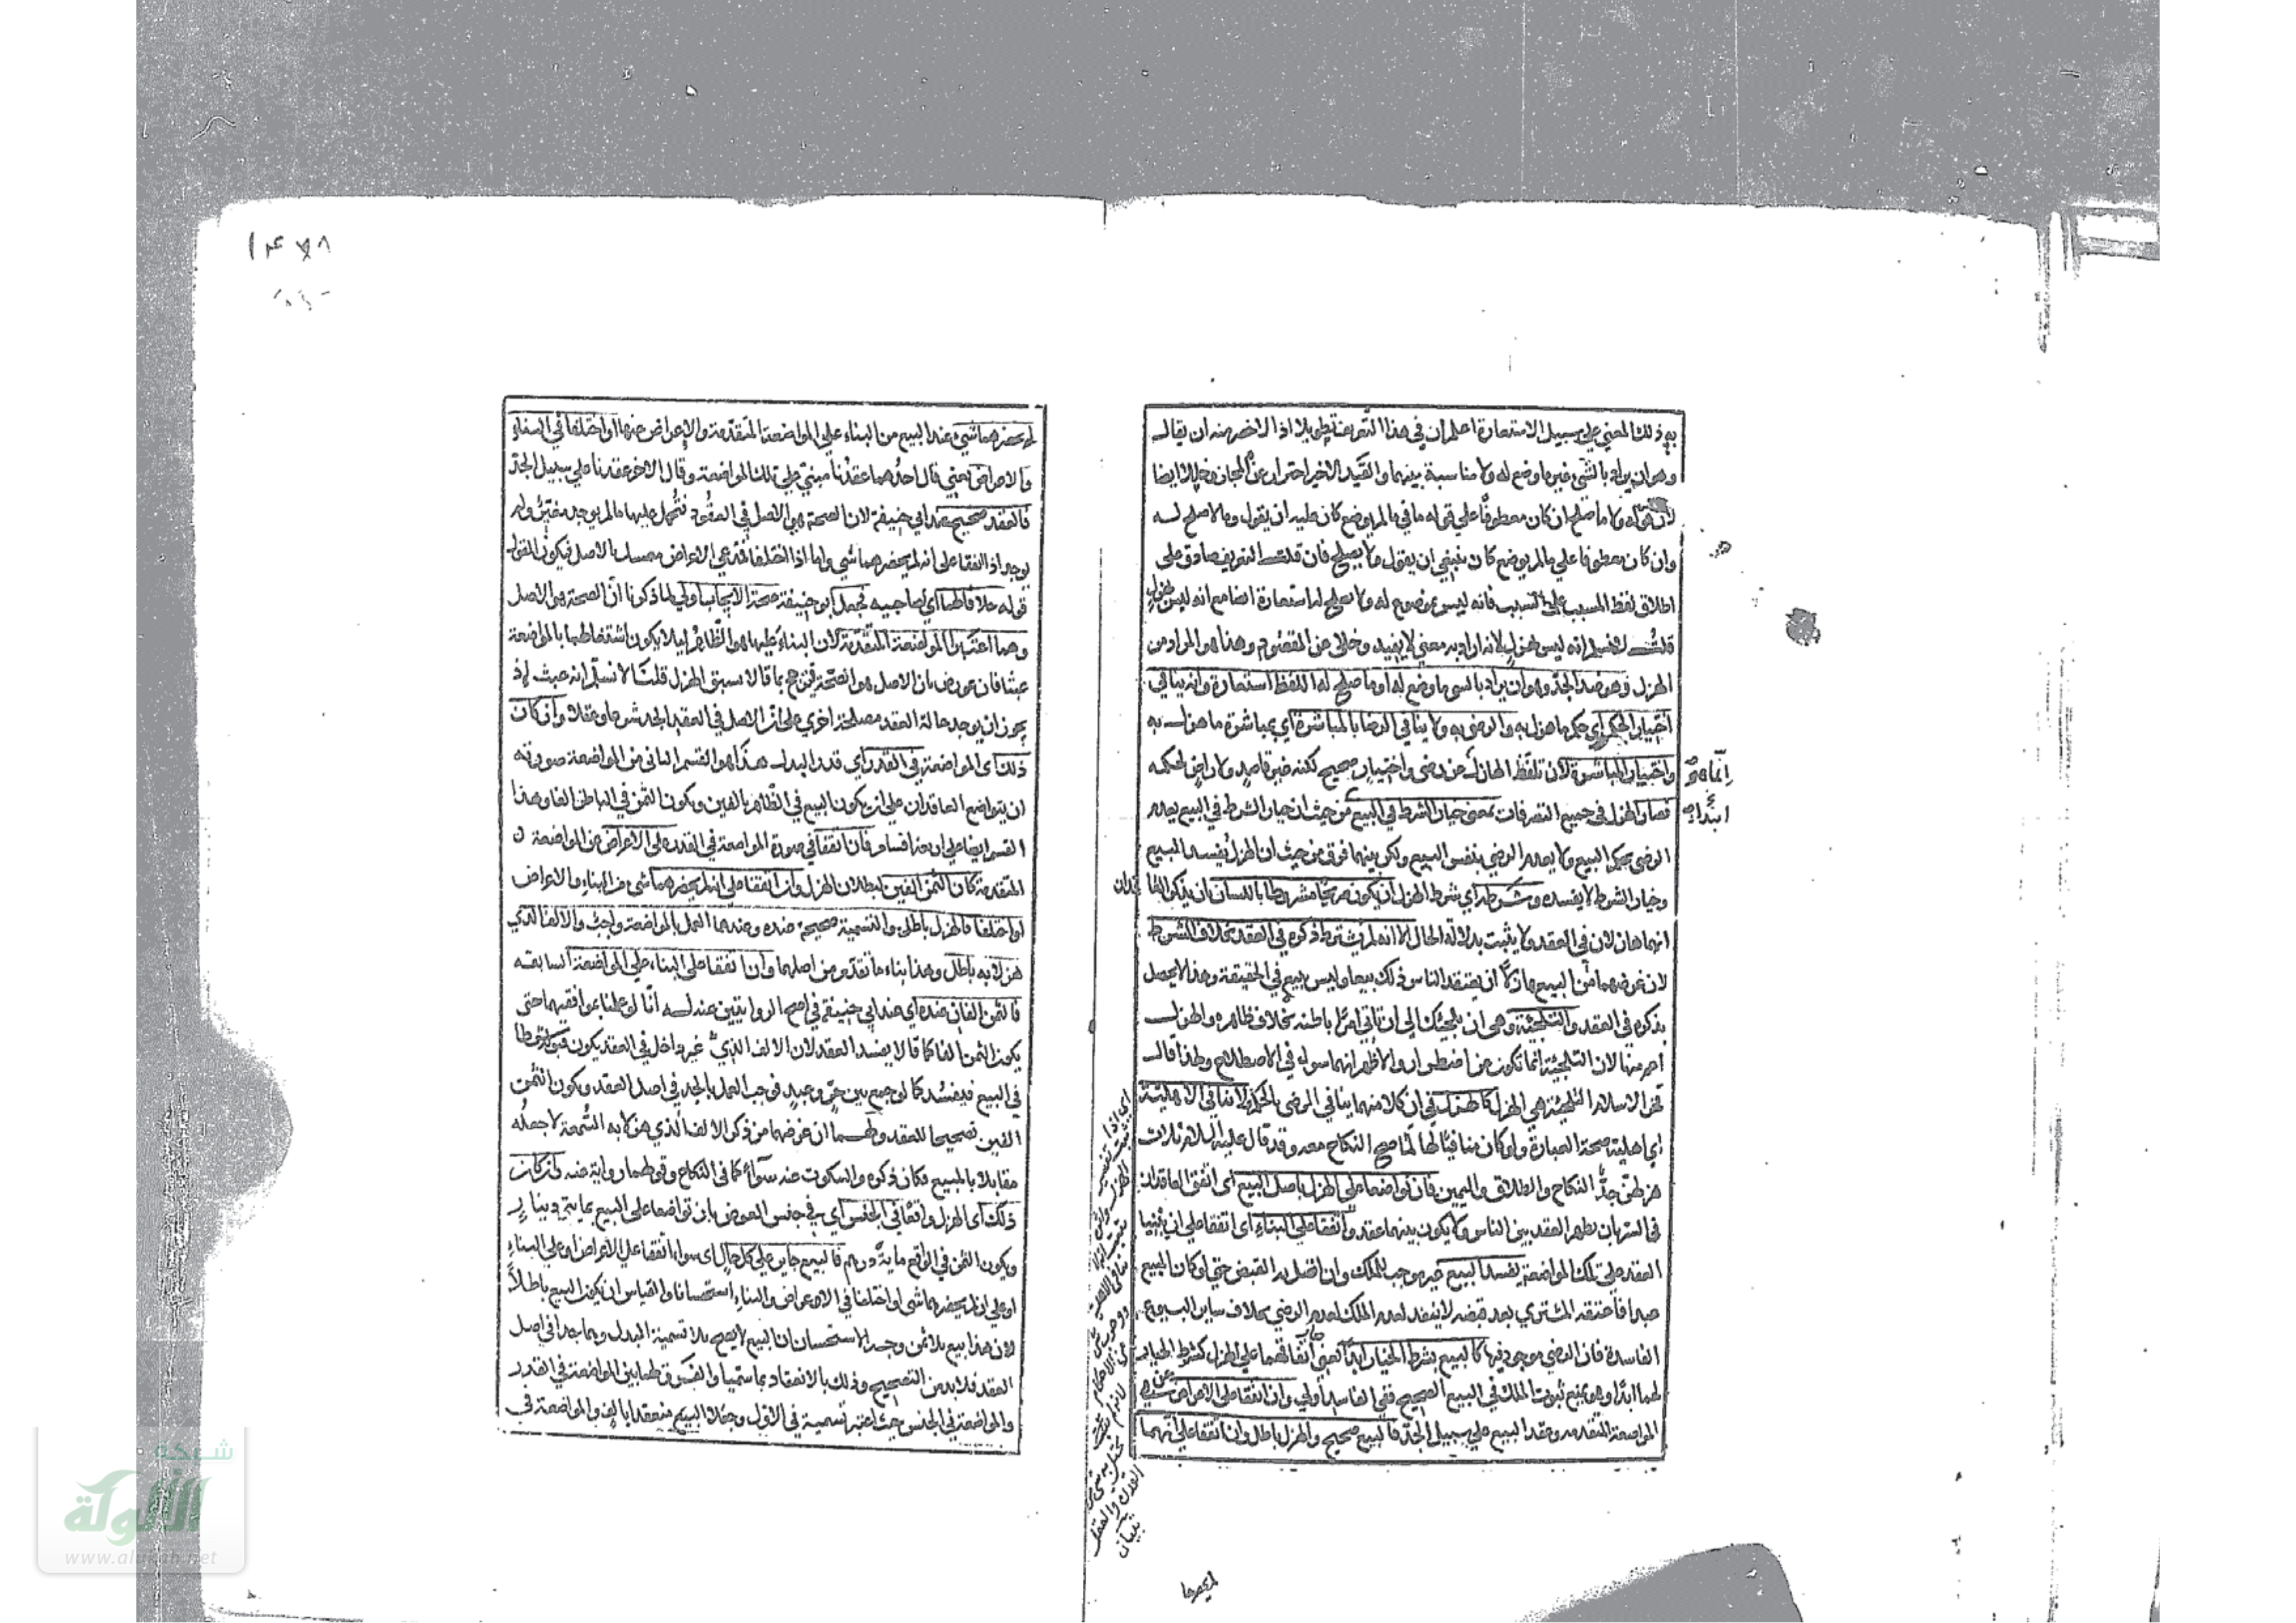 به ذلك المعني علي سبيل الاستعارة اعلم ان في هذا التعريف تطويلا اذ الاخصر منه ان يقال
وهو ان يراد بالشي غير ما وضع له ولا مناسبة بينهما والقيد الاخير احتراز عن المجاز وخللا ايضا
لان قوله ولا ما صلح ان كان معطوفا علي قوله ما في ما لم يوضع كان عليه ان يقول وما لا صلح له
وان كان معطوفا علي ما لم يوضع كان ينبغي ان يقول ولا يصلح فان قلت التعريف صادق على
اطلاق لفظ المسبب على السبب فانه ليس بموضوع له ولا يصلح له استعارة ايضا مع انه ليس بهزل
قلت لا نسلم انه ليس بهزل لانه اراد به معني لا يفيد وخلى عن المقصود وهذا هو المراد من
الهزل وهو ضد الجد وهو ان يراد بالشي ما وضع له او ما صلح له اللفظ استعارة وانه ينافي
اختيار الحكم اي حكم ما هزل به والرضي به ولا ينافي الرضا بالمباشرة اي بمباشرة ما هزل به
واختيار المباشرة لان تلفظ الهازل عن رضي واختيار صحيح لكنه غير قاصد ولا راض لحكمه
فصار الهزل في جميع التصرفات بمعنى خيار الشرط في البيع من حيث ان خيار الشرط في البيع يعدم
الرضي بحكم البيع ولا يعدم الرضي بنفس البيع ولكن بينهما فرق من حيث ان الهزل يفسد البيع
وخيار الشرط لا يفسده وشرطه اي شرط الهزل ان يكون صريحا مشروطا باللسان بان يذكرا
انهما هازلان في العقد ولا يثبت بدلالة الحال الا انه لم يشترط ذكره في العقد بخلاف الشرط
لان غرضهما من البيع هازلا ان يعتقد الناس ذلك بيعا وليس ببيع في الحقيقة وهذا لا يحصل
بذكره في العقد والتلجئة وهي ان يلجئك الي ان تاتي امرا باطنه بخلاف ظاهره والهزل
اعم منها لان التلجئة انما تكون عن اضطرار والاظهر انهما سواء في الاصطلاح ولهذا قال
فخر الاسلام التلجئة هي الهزل كالهزل في ان كلا منهما ينافي الرضي بالحكم ولا ينافي الاهلية
اي اهلية صحة العبارة ولو كان منافيا لها لما صح النكاح معه وقد قال عليه السلام ثلاث
هزلهن جد النكاح والطلاق واليمين فان تواضعا على الهزل باصل البيع اى اتفق العاقدان
في السر بان يظهر العقد بين الناس ولا يكون بينهما عقد واتفقا على البناء اى اتفقا علي ان يبنيا
العقد على تلك المواضعة يفسد البيع غير موجب للملك وان اتصل به القبض حتى لو كان المبيع
عبدا فاعتقه المشتري بعد قبضه لا ينفذ لعدم الملك لعدم الرضي بخلاف ساير البيوع
الفاسدة فان الرضي موجود فيها كالبيع بشرط الخيار ابدا يعني اتفاقهما على الهزل كشرط الخيار
لهما ابدا وهو يمنع ثبوت الملك في البيع الصحيح ففي الفاسد اولي وان اتفقا على الاعراض عن
المواضعة المتقدمه وعقد البيع علي سبيل الجد فالبيع صحيح والهزل باطل وان اتفقا علي انهما
انما هو
ابتداء
لم يحضرهما
لم يحضرهما شيء عند البيع من البناء علي المواضعة المتقدمة والاعراض عنها او اختلفا في البناء
والاعراض يعني قال احدهما عقدنا مبني علي تلك المواضعة وقال الاخر عقدنا علي سبيل الجد
فالعقد صحيح عند ابي حنيفة لان الصحة هو الاصل في العقود فتحمل عليها ما لم يوجد مغير ولم
يوجد اذا اتفقا على انه لم يحضرهما شي واما اذا اختلفا فمدعي الاعراض متمسك بالاصل فيكون القول
قوله خلافا لهما اي لصاحبيه فجعل ابو حنيفة صحة الايجاب اولي لما ذكرنا ان الصحة هو الاصل
وهما اعتبرا المواضعة المتقدمة لان البناء عليها هو الظاهر ليلا يكون اشتغالهما بالمواضعة
عبثا فان عورض بان الاصل هو الصحة يترجح بما قالا سبق الهزل قلنا لا نسلم انه عبث اذ
يجوز ان يوجد حالة العقد مصلحة اخري على ان الاصل في العقد الجد شرعا وعقلا وان كان
ذلك اى المواضعة في القدر اي قدر البدل هذا هو القسم الثاني من المواضعة صورته
ان يتواضع العاقدان علي ان يكون البيع في الظاهر بالفين ويكون الثمن في الباطن الفا وهذا
القسم ايضا على اربعة اقسام فان اتفقا في صورة المواضعة في القدر على الاعراض عن المواضعة
المتقدمة كان الثمن الفين لبطلان الهزل وان اتفقا على انه لم يحضرهما شي من البناء والاعراض
او اختلفا فالهزل باطل والتسمية صحيحة عنده وعندهما العمل بالمواضعة واجب والالف الذي
هزلا به باطل وهذا بناء ما تقدم من اصلهما وان اتفقا على البناء علي المواضعة السابقه
فالثمن الفان عنده اي عند ابي حنيفة في اصح الروايتين عنه له انا لو عملنا بموافقتهما حتى
يكون الثمن الفا كما قالا يفسد العقد لان الالف الذي غير داخل في العقد يكون قبوله شرطا
في البيع فيفسد كما لو جمع بين حر وعبد فوجب العمل بالجد في اصل العقد ويكون الثمن
الفين تصحيحا للعقد ولهما ان غرضهما من ذكر الالف الذي هزلا به السمعة لا جعله
مقابلا بالمبيع فكان ذكره والسكوت عنه سواء كما في النكاح وقولهما رواية عنه وان كان
ذلك اى الهزل واقعا في الجنس اي في جنس العوض بان تواضعا على البيع بماية دينار
ويكون الثمن في الواقع ماية درهم فالبيع جايز علي كل حال اى سواء اتفقا على الاعراض او علي البناء
او علي انه لم يحضرهما شي او اختلفا في الاعراض والبناء استحسانا والقياس ان يكون البيع باطلا
لان هذا بيع بلا ثمن وجه الاستحسان ان البيع لا يصح بلا تسمية البدل وهما جدا في اصل
العقد فلا بد من التصحيح وذلك بالانعقاد بما سميا والفرق لهما بين المواضعة في القدر
والمواضعة في الجنس حيث اعتبر تسمية في الاول وجعلا البيع منعقدا بالف والمواضعة في
شبكة
الألوكة
www.alukah.net